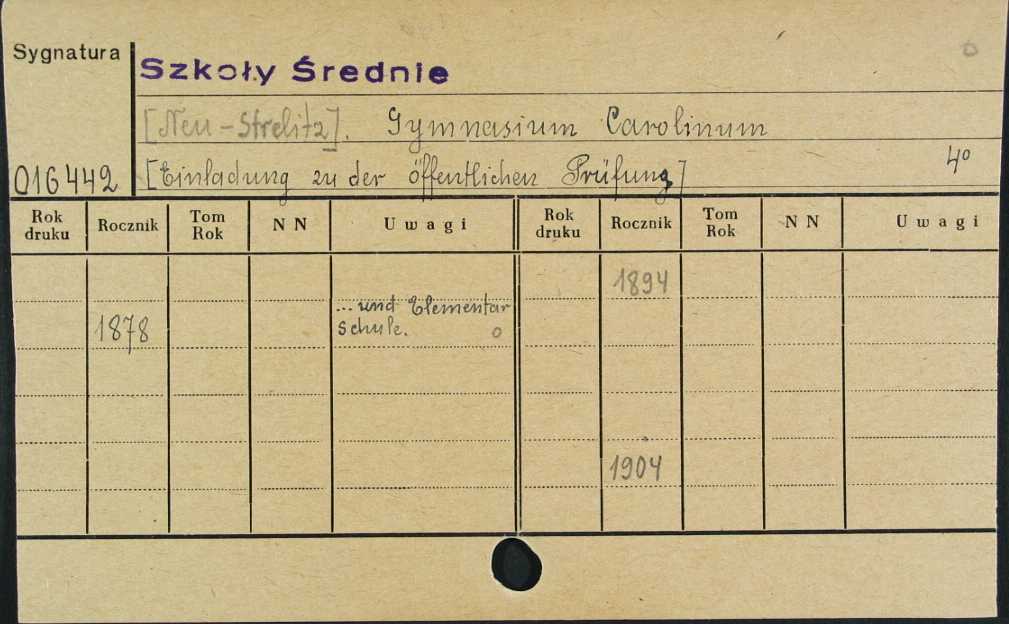 Sygnatura
Szkoły Średnie
[Neu-Strelitz]. Gymnasium Carolinum
016442 [Einladung zu der öffentlichen Prüfung] 4°
Rok druku Rocznik Tom Rok N N Uwagi Rok druku Rocznik Tom Rok N N Uwagi
1894
... und Elementar
1878 schule. o
1904